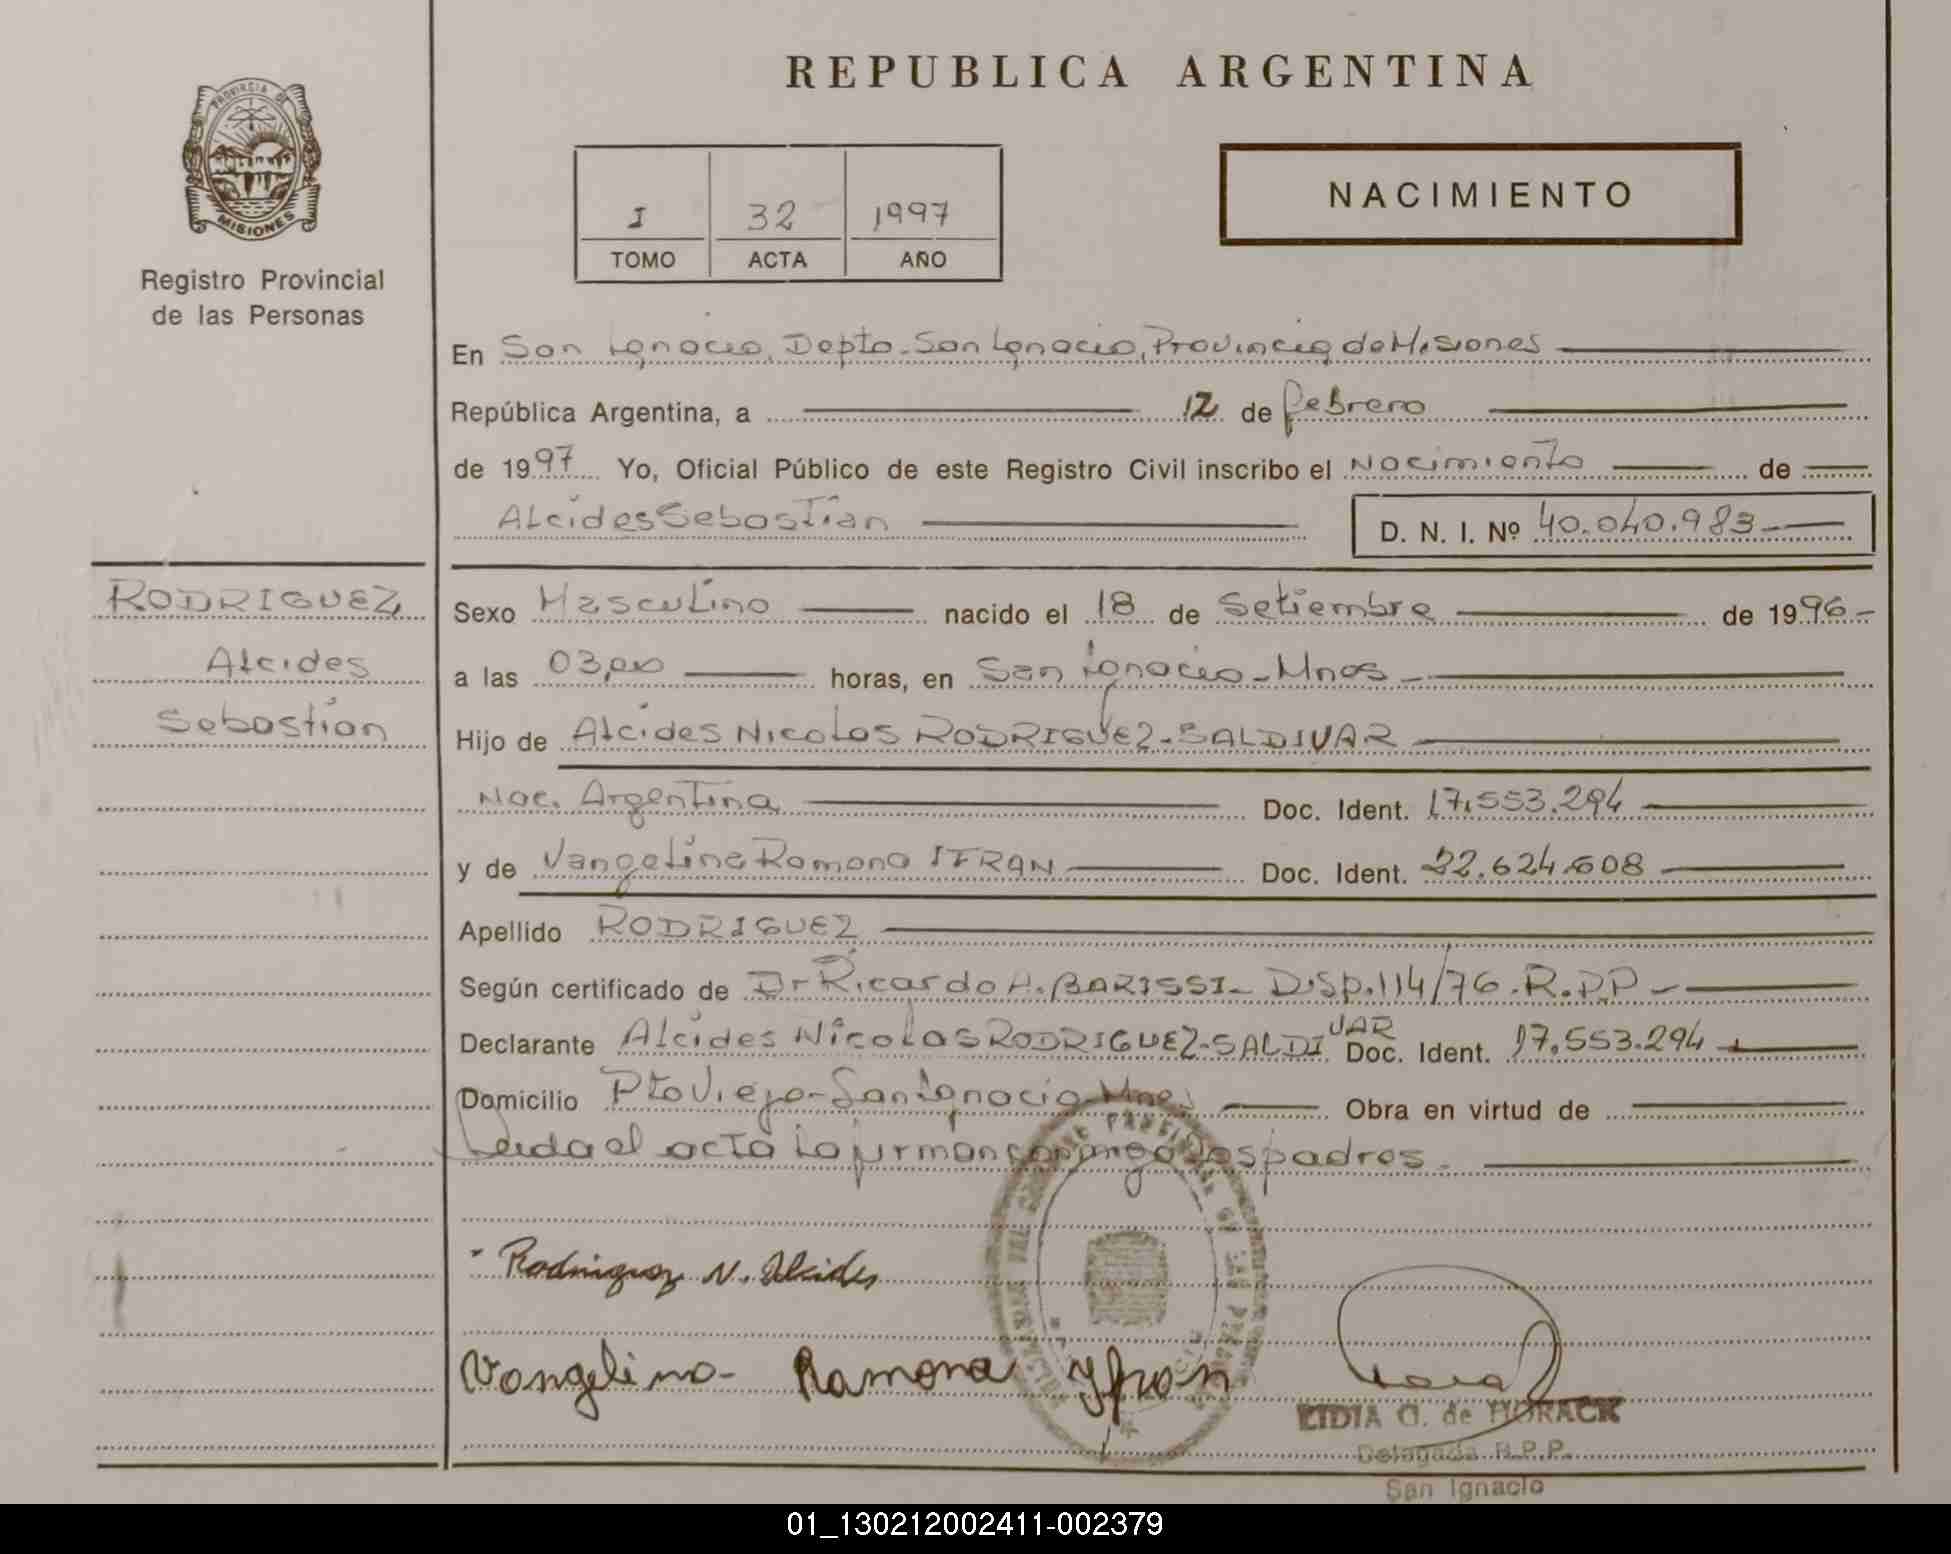 REPUBLICA ARGENTINA
PROVINCIA DE
MISIONES
Registro Provincial
de las Personas
I 32 1997
TOMO ACTA AÑO
NACIMIENTO
En San Ignacio, Depto. San Ignacio, Provincia de Misiones
República Argentina, a 12 de febrero
de 1997 Yo, Oficial Público de este Registro Civil inscribo el Nacimiento de
Alcides Sebastián
D. N. I. Nº 40.040.983
RODRIGUEZ
Alcides
Sebastián
Sexo Masculino nacido el 18 de Setiembre de 1996
a las 03,00 horas, en San Ignacio - Mnes
Hijo de Alcides Nicolas RODRIGUEZ-SALDIVAR
Nac. Argentina Doc. Ident. 17.553.294
y de Vangelina Ramona IFRAN Doc. Ident. 22.624.608
Apellido RODRIGUEZ
Según certificado de Dr Ricardo A. BARISSI - Disp. 114/76. R.P.P -
Declarante Alcides Nicolas RODRIGUEZ-SALDIVAR Doc. Ident. 17.553.294
Domicilio Pto Viejo - San Ignacio - Mnes Obra en virtud de
Leida el acta la firman conmigo los padres.
Rodriguez N. Alcides
Vangelina Ramona Yfran
LIDIA O. de HORACK
Delegada R.P.P.
San Ignacio
01_130212002411-002379